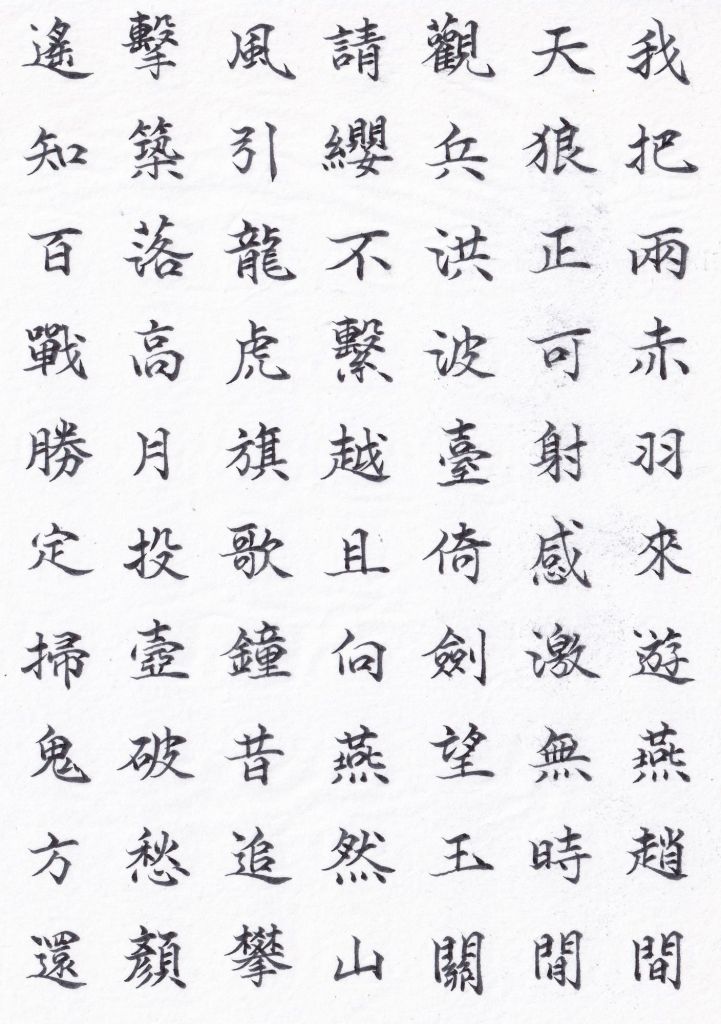 我把兩赤羽來遊燕趙間
天狼正可射感激無時閒
觀兵洪波臺倚劍望玉關
請纓不繫越且向燕然山
風引龍虎旗歌鐘昔追攀
擊築落高月投壺破愁顏
遙知百戰勝定掃鬼方還